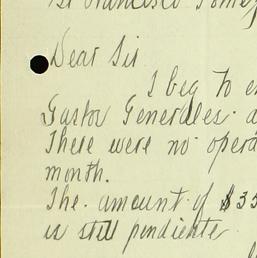 Sr Francisco Tome
Dear Sir
I beg to en
Gastos Generales. a
There were no opera
month.
The amount of $35
is still pendiente.